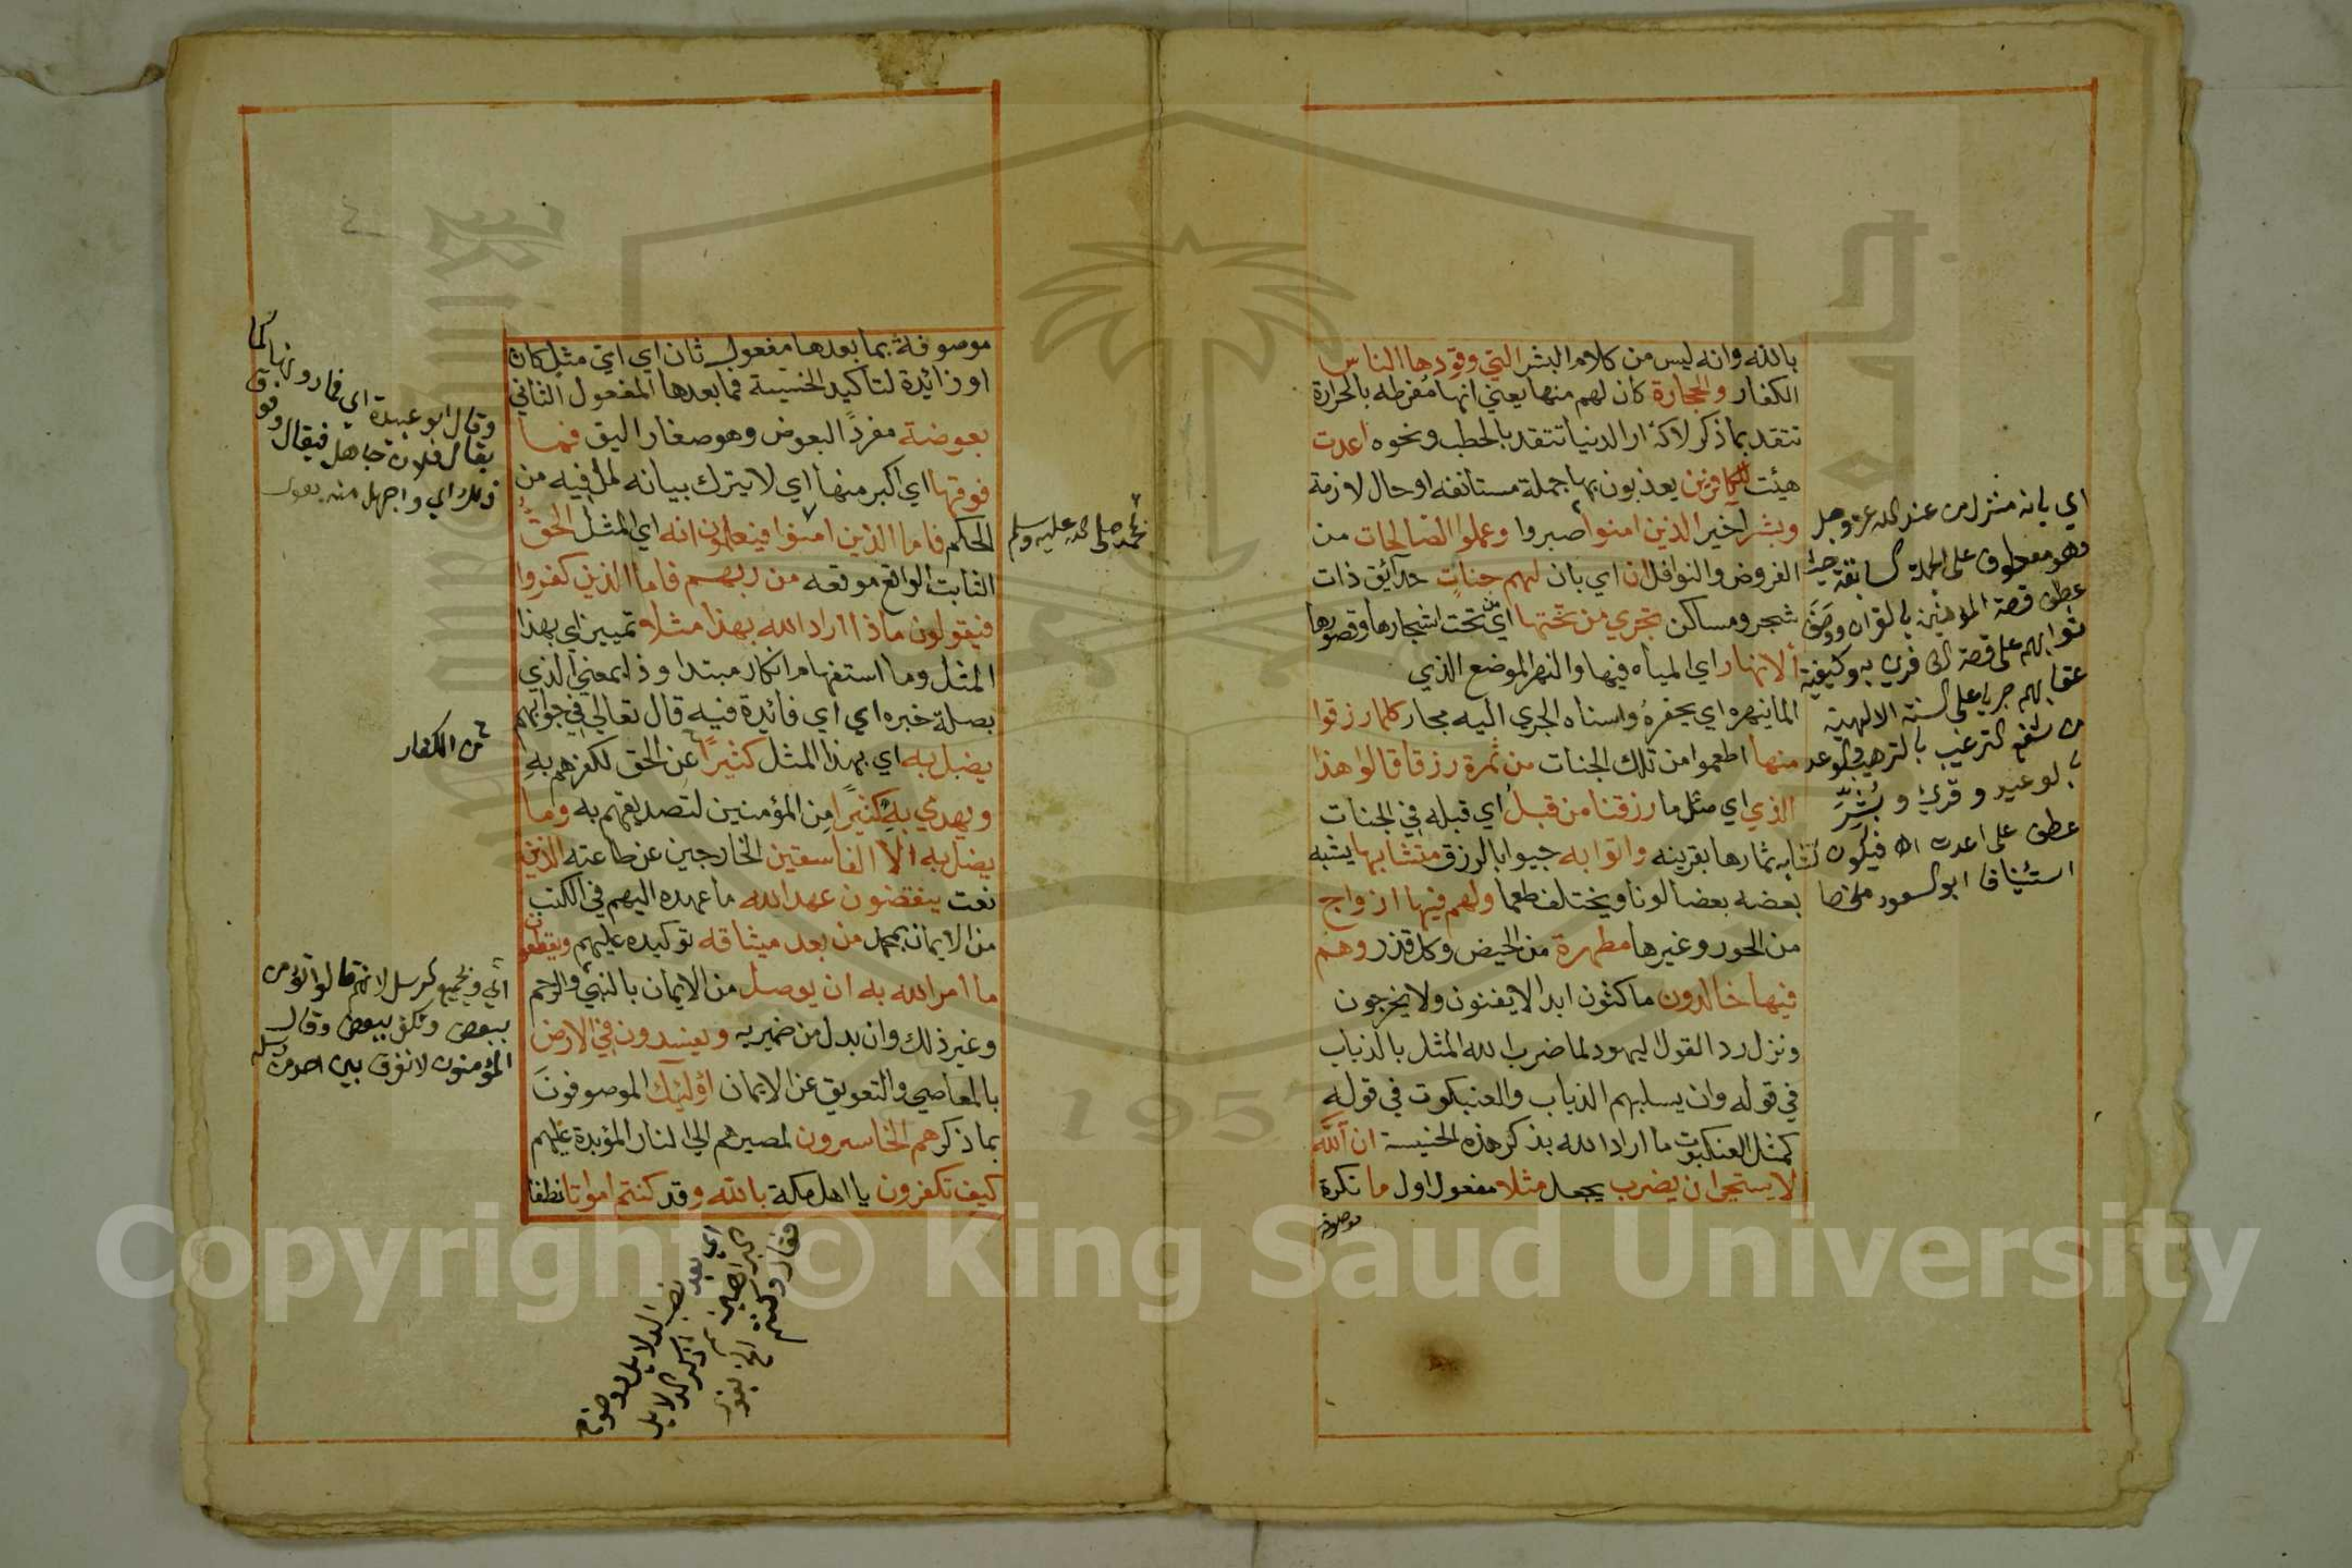 بالله وانه ليس من كلام البشر التي وقودها الناس
الكفار والحجارة كان لهم منها يعني انها مفرطه بالحرارة
تتقد بما ذكر لا كنار الدنيا تتقد بالحطب ونحوه اعدت
هيئت للكافرين يعذبون بها جملة مستانفه او حال لازمة
وبشر اخبر الذين امنوا صبروا وعملوا الصالحات من
الفروض والنوافل ان اي بان لهم جنات حدائق ذات
شجر ومساكن تجري من تحتها اي من تحت اشجارها وقصورها
الانهار اي المياه فيها والنهر الموضع الذي
الما ينهره اي يحفره واسناد الجري اليه مجاز كلما رزقوا
منها اطعموا من تلك الجنات من ثمرة رزقا قالوا هذا
الذي اي مثل ما رزقنا من قبل اي قبله في الجنات
لتشابه ثمارها بقرينه واتوا به جيوا بالرزق متشابها يشبه
بعضه بعضا لونا ويختلف طعما ولهم فيها ازواج
من الحور وغيرها مطهرة من الحيض وكل قذر وهم
فيها خالدون ماكثون ابدا لا يفنون ولا يخرجون
ونزل رد القول اليهود لما ضرب الله المثل بالذباب
في قوله وان يسلبهم الذباب والعنبكوت في قوله
كمثل العنكبوت ما اراد الله بذكر هذه الخسيسة ان الله
لا يستحي ان يضرب يجعل مثلا مفعول اول ما نكرة
موصوفة
اي بانه منزل من عند الله عز وجل
وهو معطوف على الجملة السابقة
عطف قصة المؤمنين بالقران ووصف
ثوابهم على قصة الكافرين به وكيفية
عقابهم جريا على السنة الالهية
من شفع الترغيب بالترهيب والوعد
بالوعيد وقرئ وبُشِّرَ
عطف على اعدت فيكون
استئنافا ابو السعود ملخصا
موصوفة بما بعدها مفعول ثان اي اي مثل كان
او زائدة لتاكيد الخسيسة فما بعدها المفعول الثاني
بعوضة مفرد البعوض وهو صغار البق فما
فوقها اي اكبر منها اي لا يترك بيانه لما فيه من
الحكم فاما الذين امنوا فيعلمون انه اي المثل الحق
الثابت الواقع موقعه من ربهم فاما الذين كفروا
فيقولون ماذا اراد الله بهذا مثلا تمييز اي بهذا
المثل وما استفهام انكار مبتدا وذا بمعني الذي
بصلة خبره اي اي فائدة فيه قال تعالي في جوابهم
يضل به اي بهذا المثل كثيرا عن الحق لكفرهم به
ويهدي به كثيرا من المؤمنين لتصديقهم به وما
يضل به الا الفاسقين الخارجين عن طاعته الذين
نعت ينقضون عهد الله ما عهده اليهم في الكتب
من الايمان بمحمد من بعد ميثاقه توكيده عليهم ويقطعون
ما امر الله به ان يوصل من الايمان بالنبي والرحم
وغير ذلك وان بدل من ضمير به ويفسدون في الارض
بالمعاصي والتعويق عن الايمان اولئيك الموصوفون
بما ذكر هم الخاسرون لمصيرهم الي النار المؤبدة عليهم
كيف تكفرون يا اهل مكة بالله وقد كنتم امواتا نطفا
محمد صلى الله عليه وسلم
وقال ابو عبيدة اي فما دونها كما
يقال فلان جاهل فيقال وفوق
ذلك اي واجهل منه
من الكفار
اي وبجميع الرسل لانهم قالوا نؤمن
ببعض ونكفر ببعض وقال
المؤمنون لا نفرق بين احد من رسله
اي بعد نصب الدلايل ووضوح
البراهين ثم ذكر الدلايل
فقال وكنتم الخ